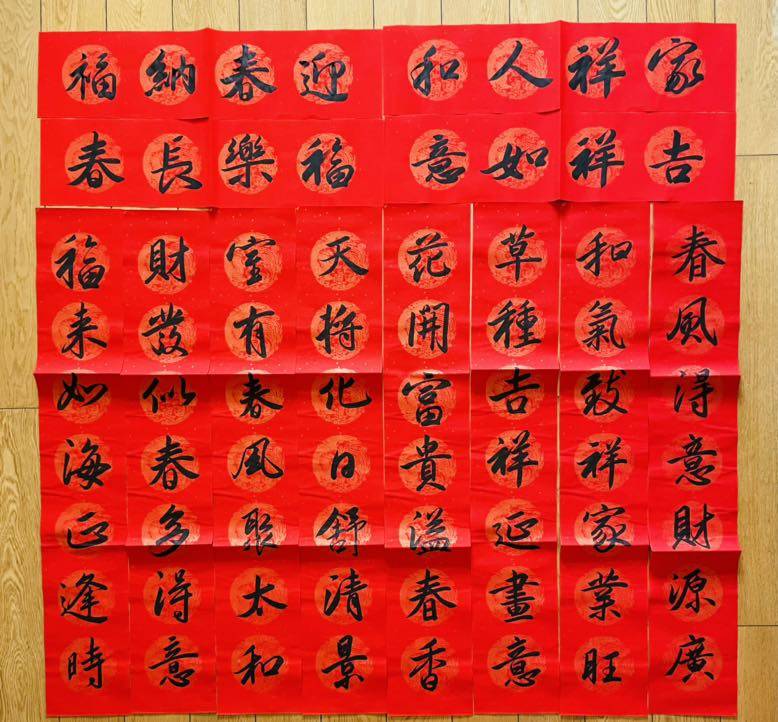 家祥人和
迎春納福
吉祥如意
福樂長春
春風得意財源廣
和氣致祥家業旺
草種吉祥延畫意
花開富貴溢春香
天將化日舒清景
室有春風聚太和
財發似春多得意
福来如海正逢時